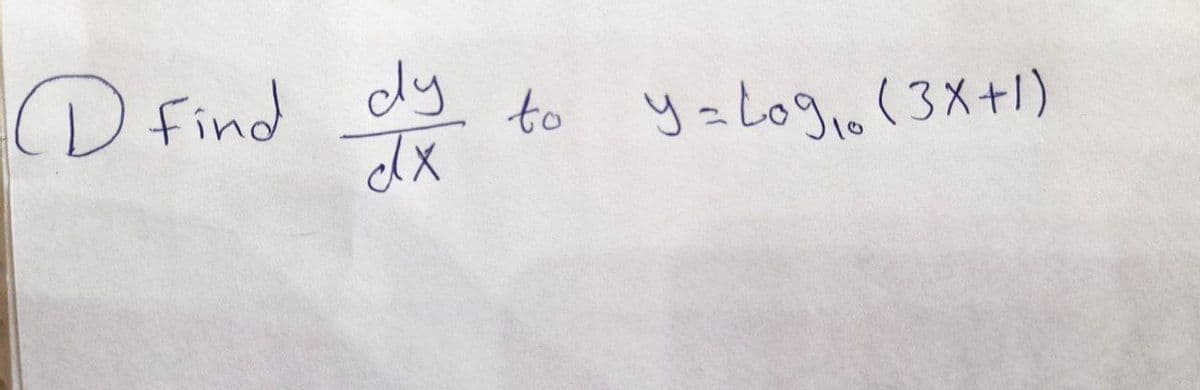 ① Find dy/dx to y=Log₁₀(3X+1)